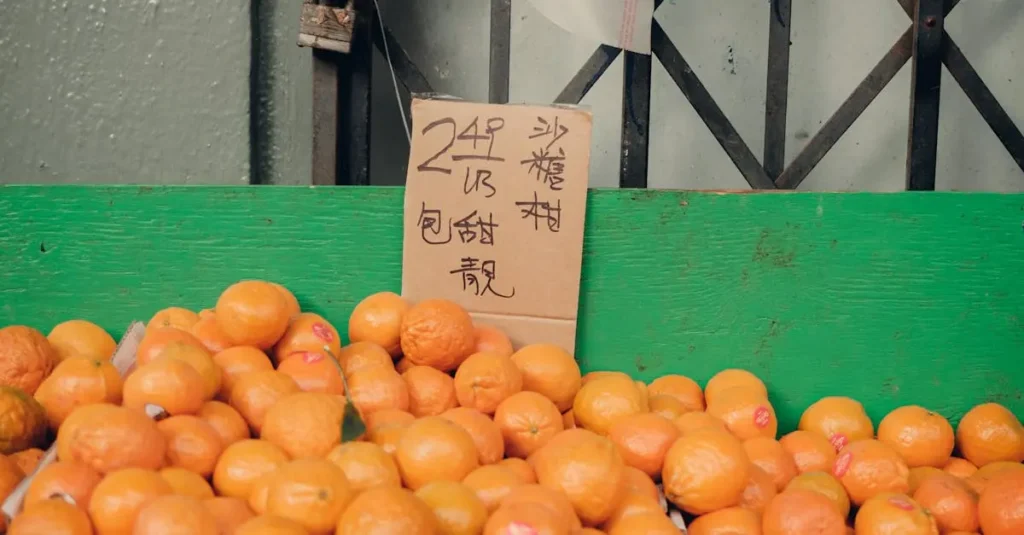 沙糖柑
2 49
LB
包甜
靚